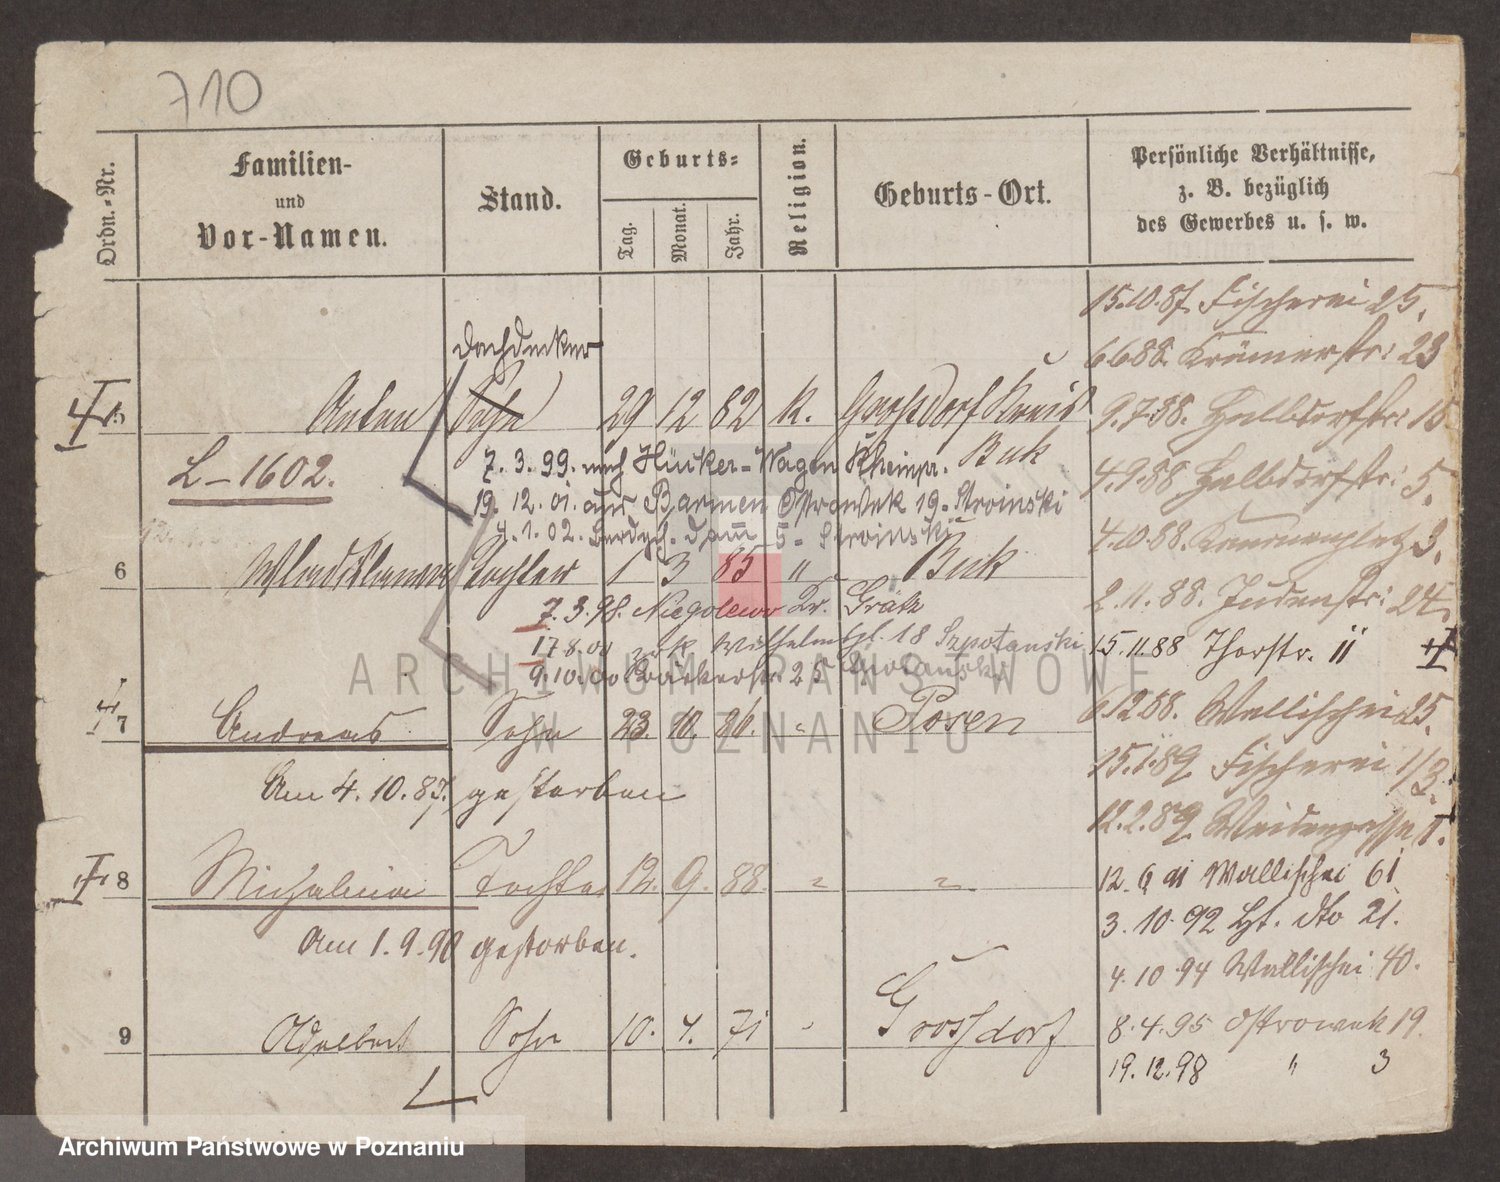 710
Ordn.-Nr.
Familien-
und
Vor-Namen.
Stand.
Geburts-
Tag.
Monat.
Jahr.
Religion.
Geburts-Ort.
Persönliche Verhältnisse,
z. B. bezüglich
des Gewerbes u. s. w.
15.10.87. Fischerei 25.
Dachdecker
6 6 88. Krämerstr: 23
5 Anton Sohn 29 12 82 K. Grossdorf Kreis
Buk
9.7.88. Halbdorfstr: 15.
L-1602.
7. 3. 99. nach Hücker-Wagen Rheinpr.
4.9.88 Halbdorfstr: 5.
19. 12. 01. aus Barmen Ostrowek 19. Stroinski
4. 1. 02. 5. Stroinski
4.10.88. 3.
6 Wladislawa Tochter 1 3 85 " Buk
7. 3. 98. Niegolewo Kr. Grätz
2. 11. 88. Judenstr: 24.
17 8. 00 zrk Wilhelmspl. 18 Szpotanski
15.11.88 Thorstr. 11
9. 10. 00 Bäckerstr. 25
7 Andreas Sohn 23. 10. 86. " Posen
6.12.88. Wallischei 25.
15.1.89. Fischerei 1/3.
Am 4. 10. 87. gestorben
12.2.89. Weidengasse
8 Michalina Tochter 12. 9. 88. " "
12. 9 91 Wallischei 61
3. 10. 92 Ht. dto 21.
Am 1. 9. 90 gestorben.
4. 10 94 Wallischei 40.
9 Adalbert Sohn 10. 4. 71 " Grossdorf
8. 4. 95 Ostrowek 19.
19. 12. 98 " 3
ARCHIWUM PAŃSTWOWE
W POZNANIU
Archiwum Państwowe w Poznaniu